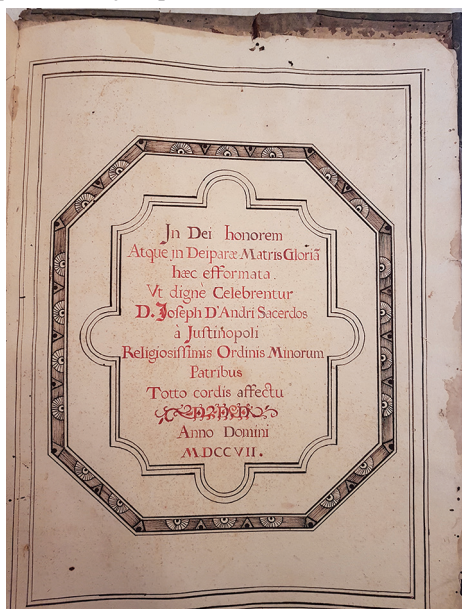 Jn Dei honorem
Atque jn Deiparæ Matris Gloriã
hæc efformata.
Vt dignè Celebrentur
D. Joseph D'Andri Sacerdos
à Justinopoli
Religiosissimis Ordinis Minorum
Patribus
Totto cordis affectu
Anno Domini
M.DCCVII.